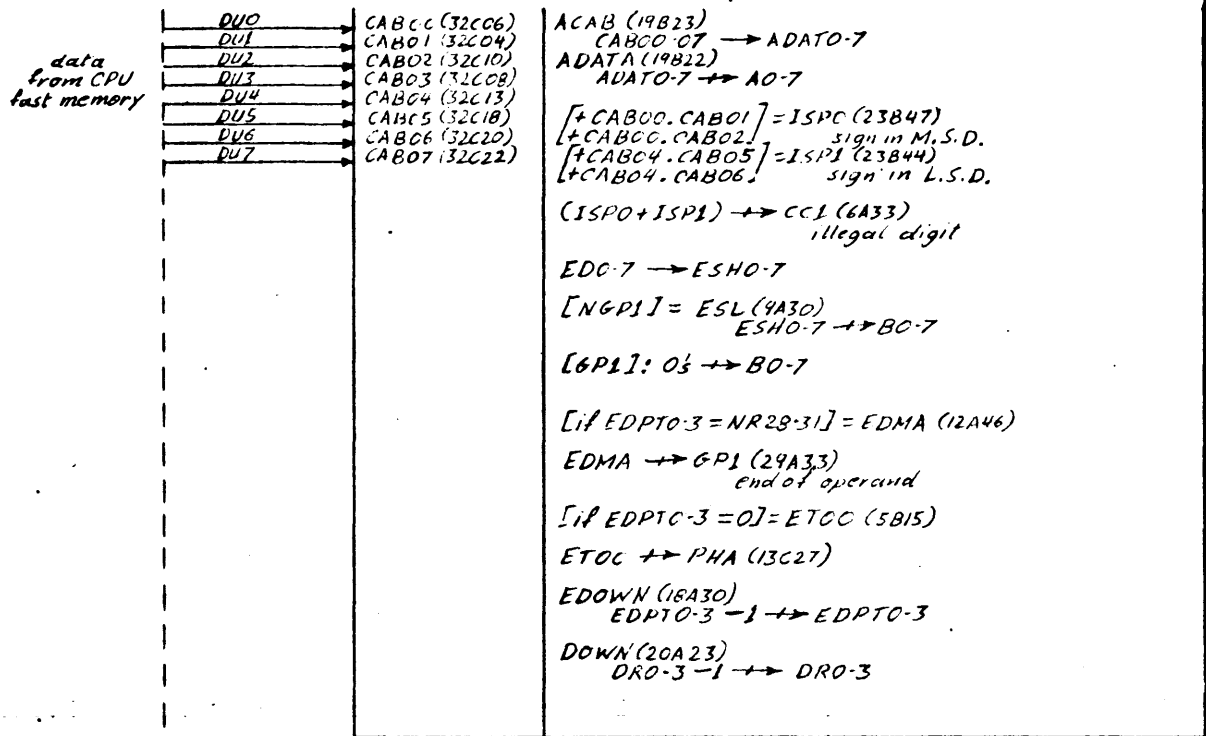 data
from CPU
fast memory
DU0
DU1
DU2
DU3
DU4
DU5
DU6
DU7
CAB00 (32C06)
CAB01 (32C04)
CAB02 (32C10)
CAB03 (32C08)
CAB04 (32C13)
CAB05 (32C18)
CAB06 (32C20)
CAB07 (32C22)
ACAB (19B23)
CAB00-07 → ADAT0-7
ADATA (19B22)
ADAT0-7 +→ A0-7
[+CAB00.CAB01] = ISP0 (23B47)
[+CAB00.CAB02] sign in M.S.D.
[+CAB04.CAB05] = ISP1 (23B44)
[+CAB04.CAB06] sign in L.S.D.
(ISP0+ISP1) +→ CC1 (6A33)
illegal digit
ED0-7 → ESH0-7
[NGP1] = ESL (4A30)
ESH0-7 +→ B0-7
[GP1]: 0's +→ B0-7
[if EDPT0-3 = NR28-31] = EDMA (12A46)
EDMA +→ GP1 (29A33)
end of operand
[if EDPT0-3 = 0] = ETOC (5B15)
ETOC +→ PHA (13C27)
EDOWN (18A30)
EDPT0-3 -1 +→ EDPT0-3
DOWN (20A23)
DR0-3 -1 +→ DR0-3